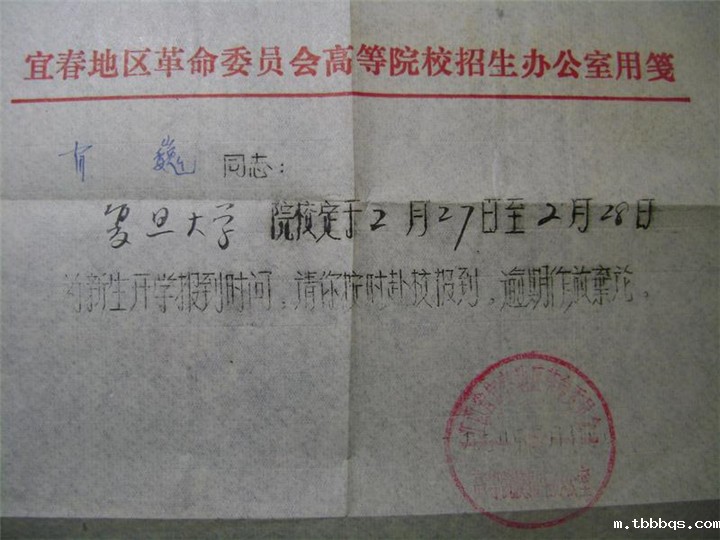 宜春地区革命委员会高等院校招生办公室用笺
肖 巍 同志:
复旦大学 院校定于2月27日至2月28日
为新生开学报到时间,请你按时赴校报到,逾期作放棄论。
m.tbbbqs.com